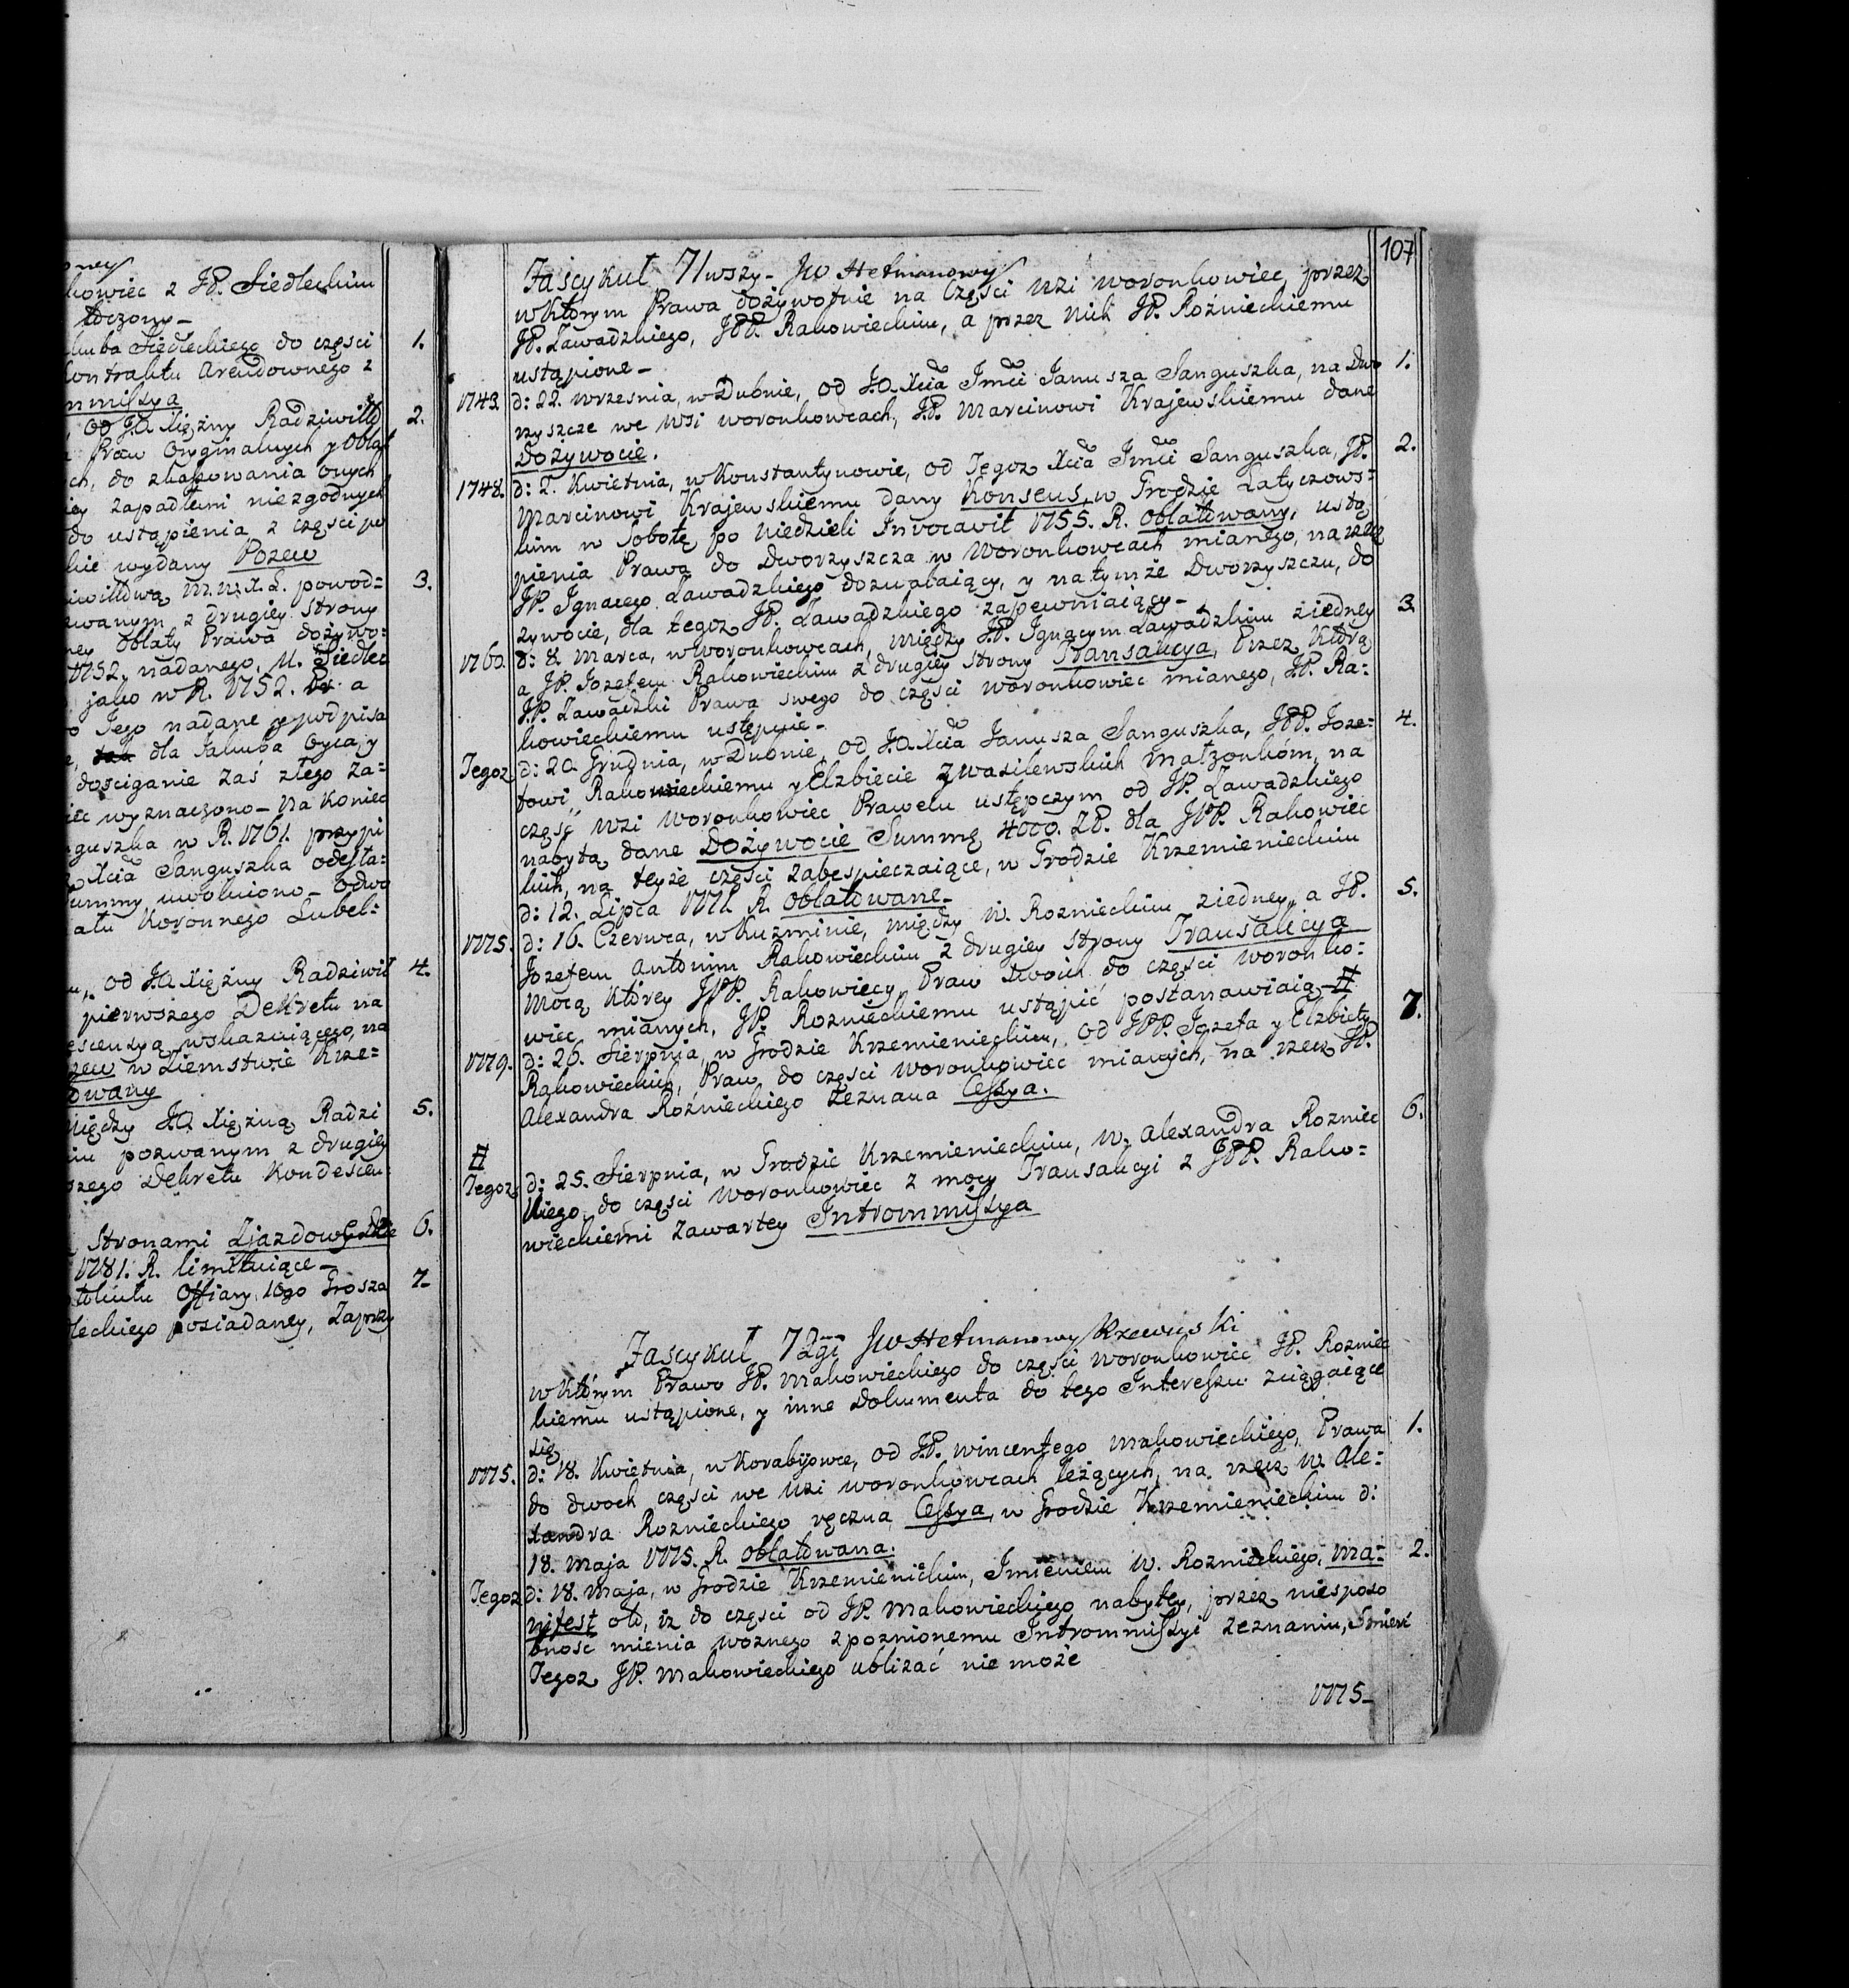 oney
kowiec z JP. Siedleckim
tdczony_
kuba Siedleckiego do części 1.
Kontraktu Arendownego z
mmissya
, od J.O. Xiężny Radziwiłł 2.
Praw Oryginalnych y oblat
ch, do skassowania onych
iey zapadłemi niezgodnych
do ustąpienia z części po
kie wydany Pozew
iwiłłową M.W.X.L. powod= 3.
zwanym z drugiey strony
ney oblaty Prawa dożywo=
1752. nadanego, U. Siedlec
jako w R. 1752. a
o Jego nadane y podpisa
e, dla Jakuba Oyca, y
dościganie zaś złego za=
iec wyznaczono_ na koniec
guszka w R. 1761. przypi
Xcia Sanguszka odesła=
summy uwolniono_ odwo
ału Koronnego Lubel=
u, od J.O. Xiężny Radziwił 4.
pierwszego Dekretu na
escensyą wskazuiącego, na
zew w Ziemstwie Krze=
owany
między J.O. Xiężną Radzi 5.
iu pozwanym z drugiey
szego Dekretu Kondescen=
Stronami Zjazdowe 6.
1781. R. limituiące_
Offiary 10go Grosza 7_
leckiego posiadaney, Zaprzy
107
Fascykuł 71wszy_ JW Hetmanowy
w którym Prawa dożywotnie na Części wsi Woronkowiec, przez
JP. Zawadzkiego, JPP. Rakowieckim, a przez nich JP. Rożnieckiemu
ustąpione_
1743. d: 22. Września, w Dubnie, od J.O. Xcia Jmci Janusza Sanguszka, na Dwo 1.
rzyszcze we wsi Woronkowcach, JP. Marcinowi Krajewskiemu dane
Dożywocie.
1748. d: 2. Kwietnia, w Konstantynowie, od Tegoż Xcia Jmci Sanguszka, JP. 2.
Marcinowi Krajewskiemu dany Konsens, w Grodzie Latyczows=
kim w Sobotę po Niedzieli Invocavit 1755. R. oblatowany, ustą
pienia Prawa do Dworzyszcza w Woronkowcach mianego, na rzecz
JP. Ignacego Zawadzkiego dozwalaiący, y na tymże Dworzyszczu, do
żywocie, dla tegoż JP. Zawadzkiego zapewniaiący_
1760. d: 8. Marca, w Woronkowcach, między JP. Ignacym Zawadzkim z iedney 3.
a JP. Jozefem Rakowieckim z drugiey strony Transakcya, Przez którą
JP. Zawadzki Prawa swego do części Woronkowiec mianego, JP. Ra=
kowieckiemu ustępuie_
Tegoż d: 20. Grudnia, w Dubnie, od J.O. Xcia Janusza Sanguszka, JPP. Joze= 4.
fowi Rakowieckiemu y Elzbiecie z Wasilewskich małżonkom, na
część wsi Woronkowiec Prawem ustępczym od JP. Zawadzkiego
nabytą dane Dożywocie Summę 4000. ZP. dla JPP. Rakowiec
kich, na teyże części zabespieczaiące, w Grodzie Krzemienieckim
d: 12. Lipca 1771. R. oblatowane_
1775. d: 16. Czerwca, w Kuzminie, między W. Roznieckim z iedney, a JP. 5.
Jozefem Antonim Rakowieckim z drugiey strony Transakcya
mocą którey JPP. Rakowieccy Praw swoich do części Woronko=
wiec mianych, JP. Roznieckiemu ustąpić postanawiaią_ #
1779. d: 26. Sierpnia, w Grodzie Krzemienieckim, od JPP. Jozefa y Elzbiety 7.
Rakowieckich, Praw do części Woronkowiec mianych, na rzecz JP.
Alexandra Rożnieckiego zeznana Cessya.
#
Tegoż d: 25. Sierpnia, w Grodzie Krzemienieckim, W. Alexandra Rozniec 6.
kiego, do części Woronkowiec z mocy Transakcyi z JPP. Rako=
wieckiemi zawartey Intrommissya
Fascykuł 72gi JW Hetmanowy Rzewuski
w którym Prawo JP. Makowieckiego do części Woronkowiec JP. Rozniec
kiemu ustąpione, y inne Dokumenta do tego Interessu zciągaiące
się
1775. d: 18. Kwietnia, w Korabijowce, od JP. Wincentego Makowieckiego, Prawa 1.
do dwoch części we wsi Woronkowcach leżących, na rzecz W. Ale=
xandra Roznieckiego ręczna Cessya, w Grodzie Krzemienieckim d:
18. Maja 1775. R. oblatowana.
Tegoż d: 18. Maja, w Grodzie Krzemienickim, Jmieniem W. Roznieckiego, Ma= 2.
nifest oto, iż do części od JP. Makowieckiego nabytey, przez niesposo
bność mienia woznego zpoznionemu Intrommissyi zeznaniu, Śmierć
Tegoż JP. Makowieckiego ubliżać nie może
1775_